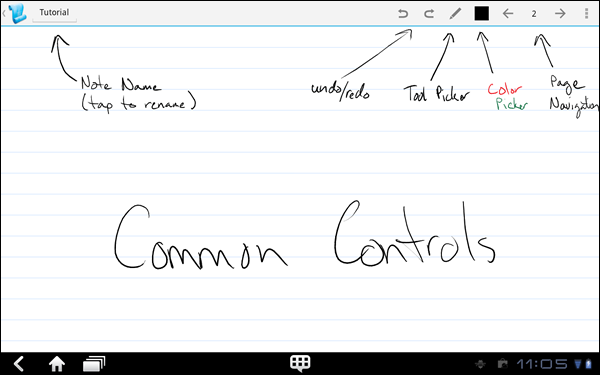 Tutorial
2
Note Name
(tap to rename)
undo/redo
Tool Picker
Color
Picker
Page
Navigation
Common Controls
11:05